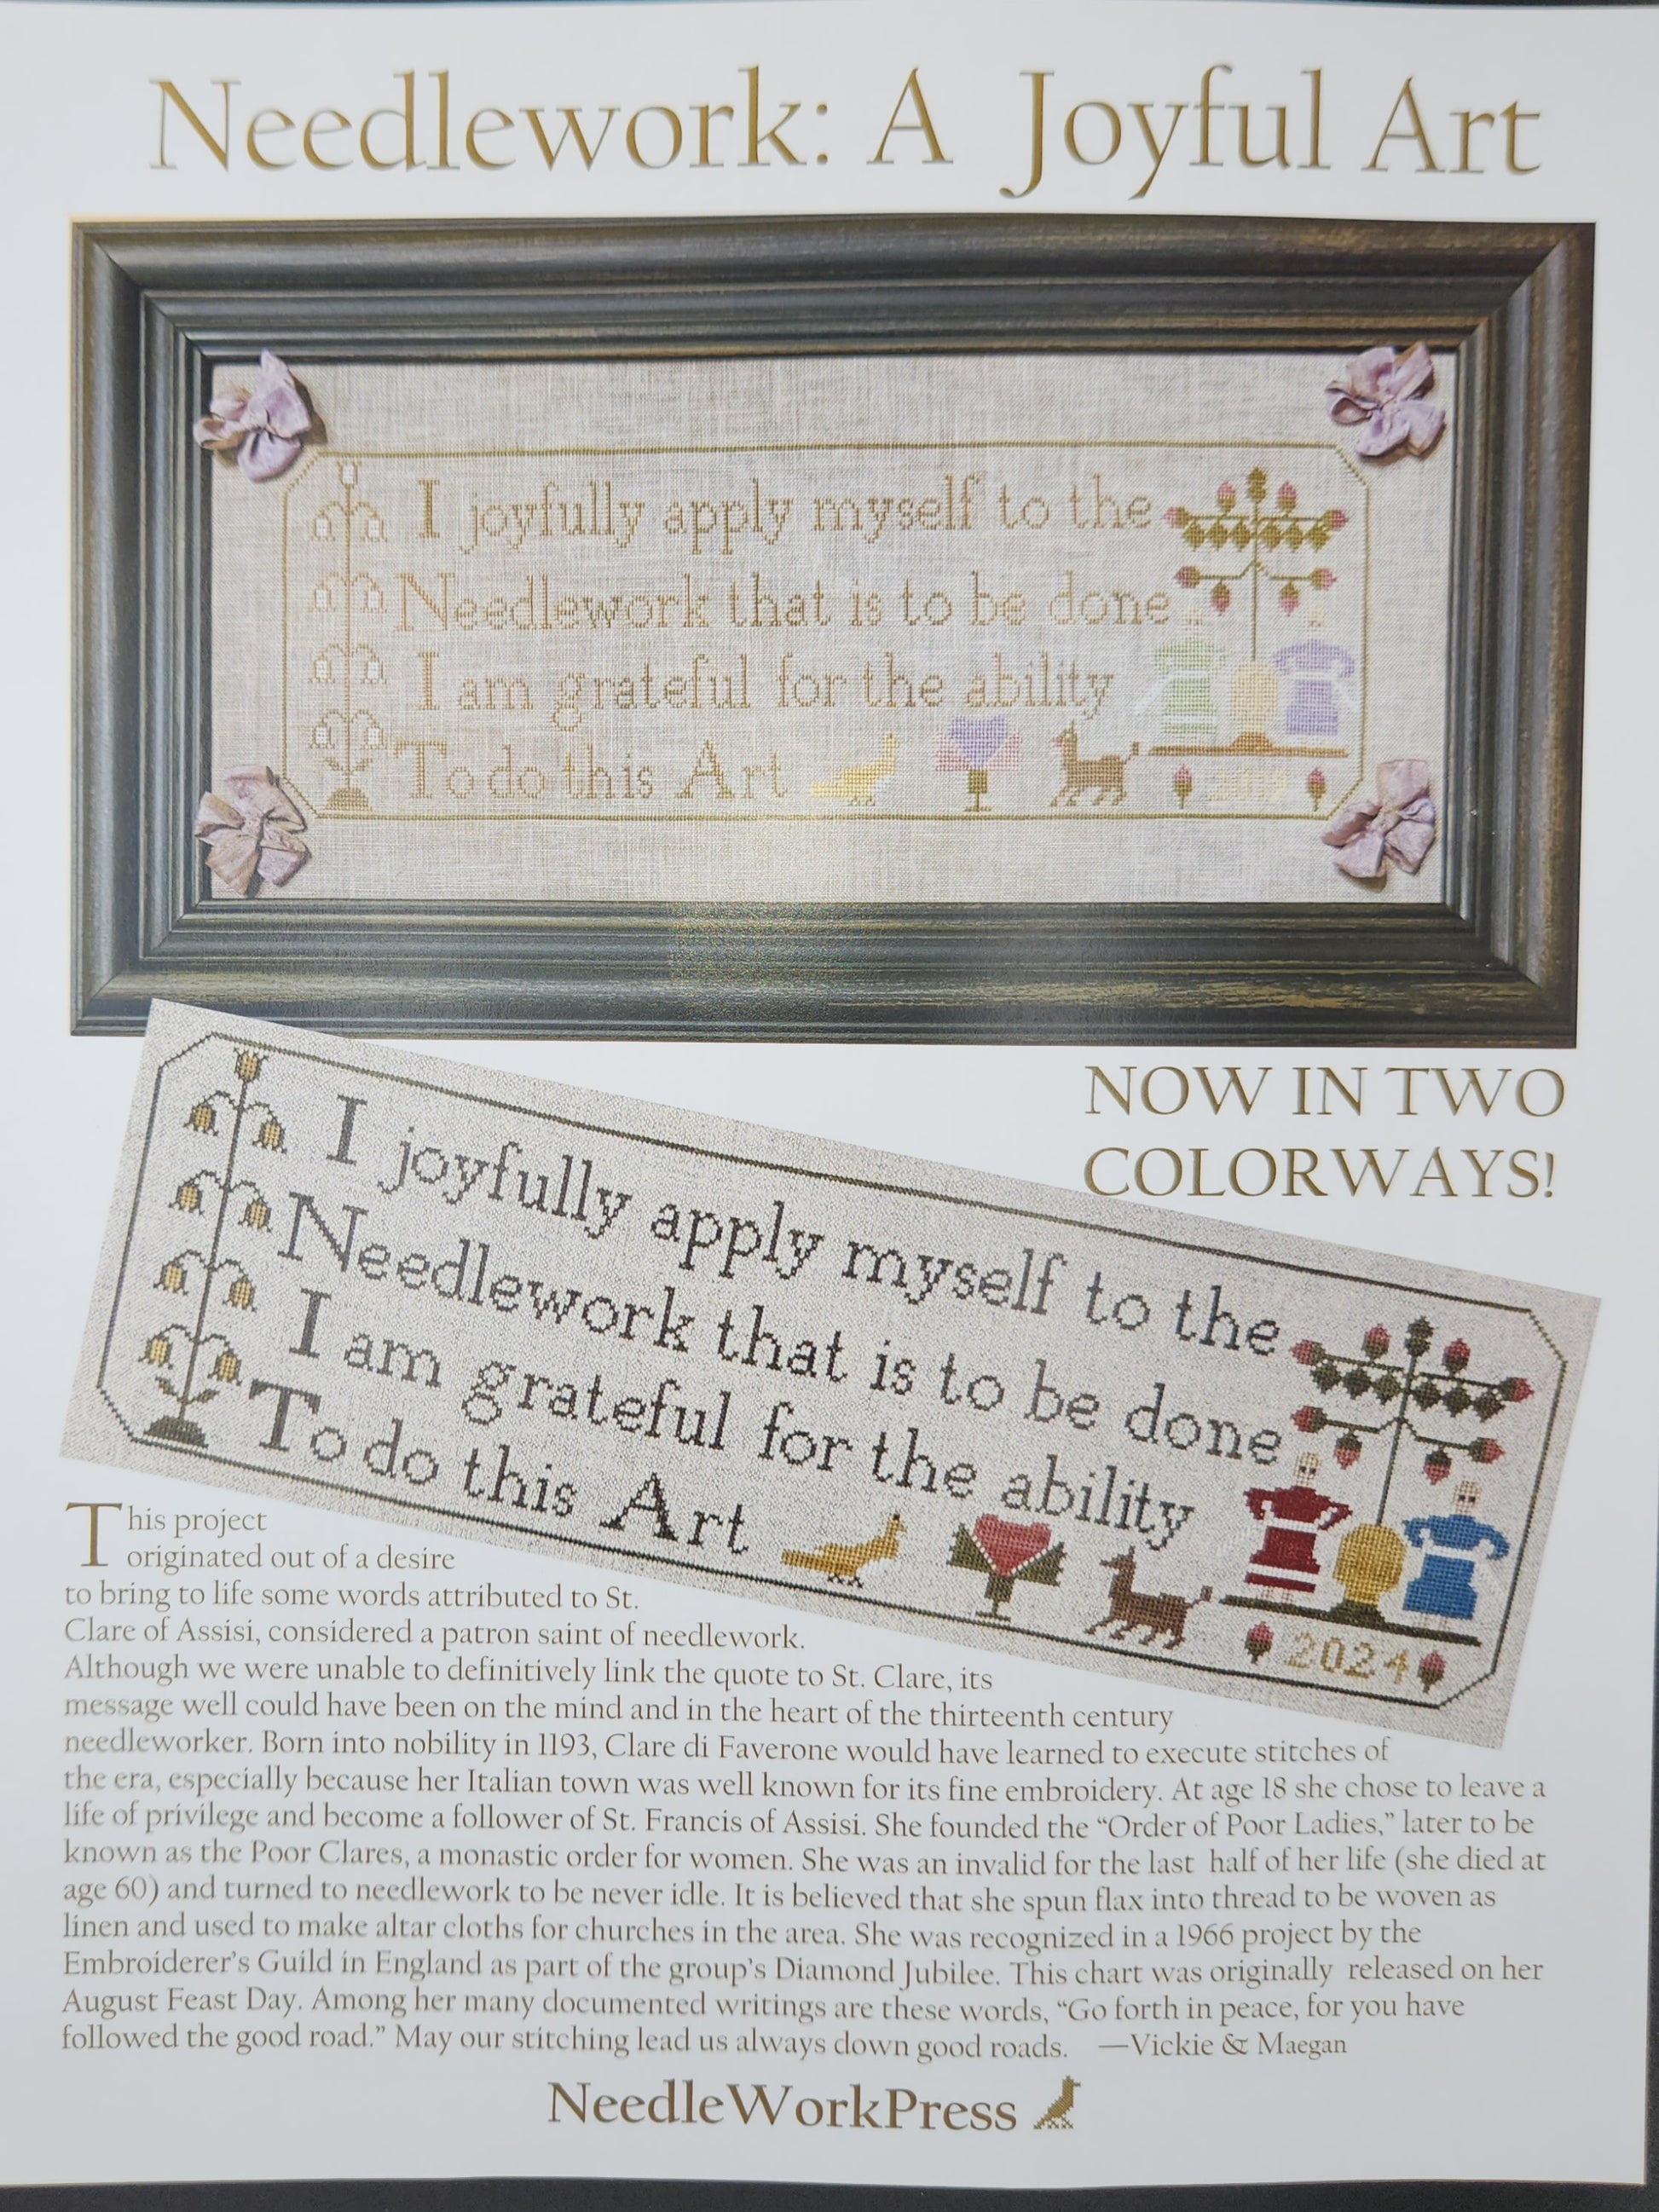 Needlework: A Joyful Art
I joyfully apply myself to the
Needlework that is to be done
I am grateful for the ability
To do this Art
NOW IN TWO
COLORWAYS!
I joyfully apply myself to the
Needlework that is to be done
I am grateful for the ability
To do this Art
2024
This project
originated out of a desire
to bring to life some words attributed to St.
Clare of Assisi, considered a patron saint of needlework.
Although we were unable to definitively link the quote to St. Clare, its
message well could have been on the mind and in the heart of the thirteenth century
needleworker. Born into nobility in 1193, Clare di Faverone would have learned to execute stitches of
the era, especially because her Italian town was well known for its fine embroidery. At age 18 she chose to leave a
life of privilege and become a follower of St. Francis of Assisi. She founded the “Order of Poor Ladies,” later to be
known as the Poor Clares, a monastic order for women. She was an invalid for the last half of her life (she died at
age 60) and turned to needlework to be never idle. It is believed that she spun flax into thread to be woven as
linen and used to make altar cloths for churches in the area. She was recognized in a 1966 project by the
Embroiderer’s Guild in England as part of the group’s Diamond Jubilee. This chart was originally released on her
August Feast Day. Among her many documented writings are these words, “Go forth in peace, for you have
followed the good road.” May our stitching lead us always down good roads. —Vickie & Maegan
NeedleWorkPress